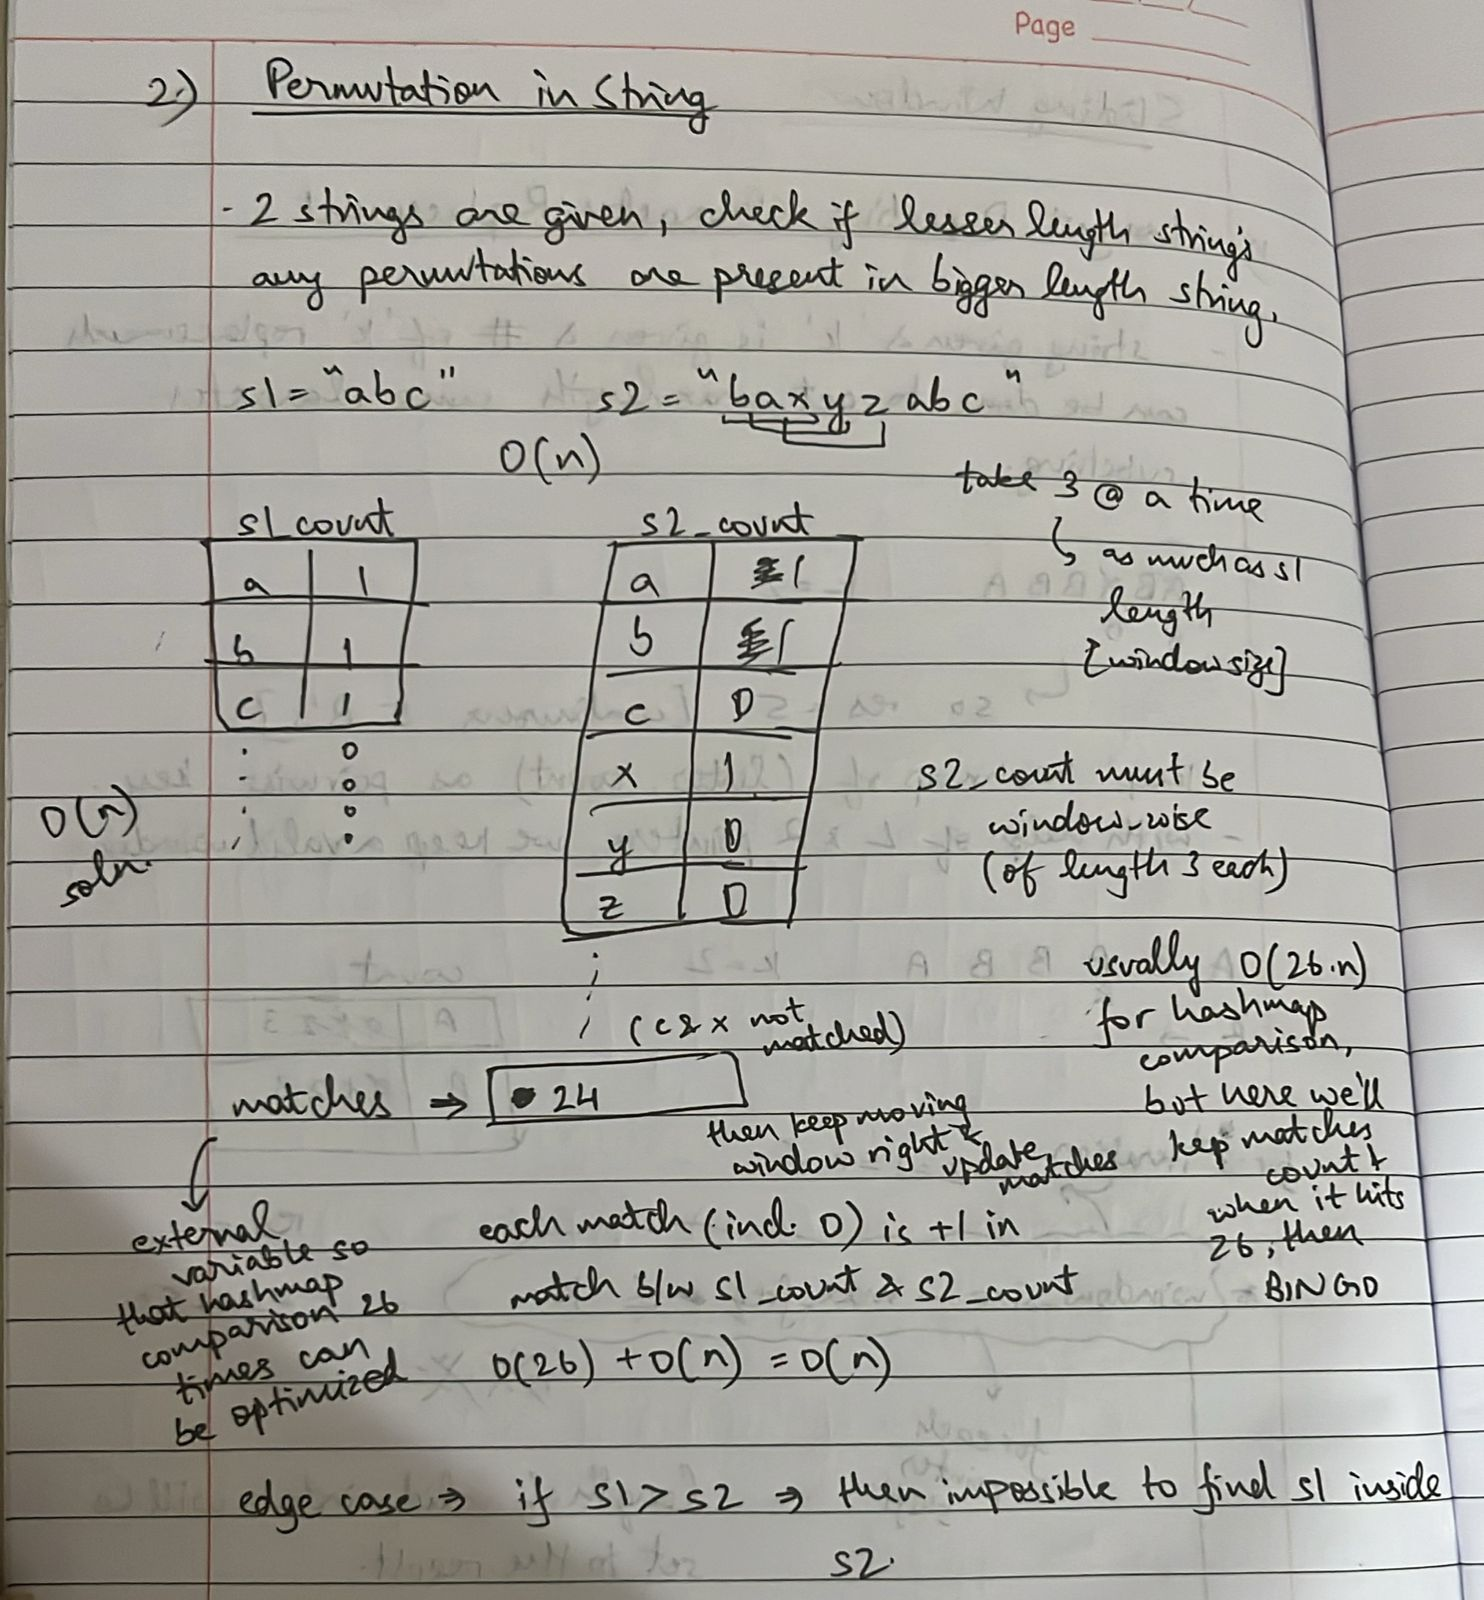 Page
2.) Permutation in String
- 2 strings are given, check if lesser length string's
any permutations are present in bigger length string.
s1 = "abc" s2 = "baxyzabc"
O(n)
take 3 @ a time
↳ as much as s1
length
[window size]
s1_count
a 1
b 1
c 1
: 0
- 0
: 0
: 0
O(n)
soln.
s2_count
a 1
b 1
c 0
x 1
y 0
z 0
s2_count must be
window-wise
(of length 3 each)
(c & x not
matched)
usually O(26.n)
for hashmap
comparison,
but here we'll
kep matches
count &
when it hits
26, then
BINGO
matches → 24
then keep moving
window right &
update
matches
external
variable so
that hashmap
comparison 26
times can
be optimized
each match (incl. 0) is +1 in
match b/w s1_count & s2_count
O(26) + O(n) = O(n)
edge case ⇒ if s1 > s2 ⇒ then impossible to find s1 inside
s2.